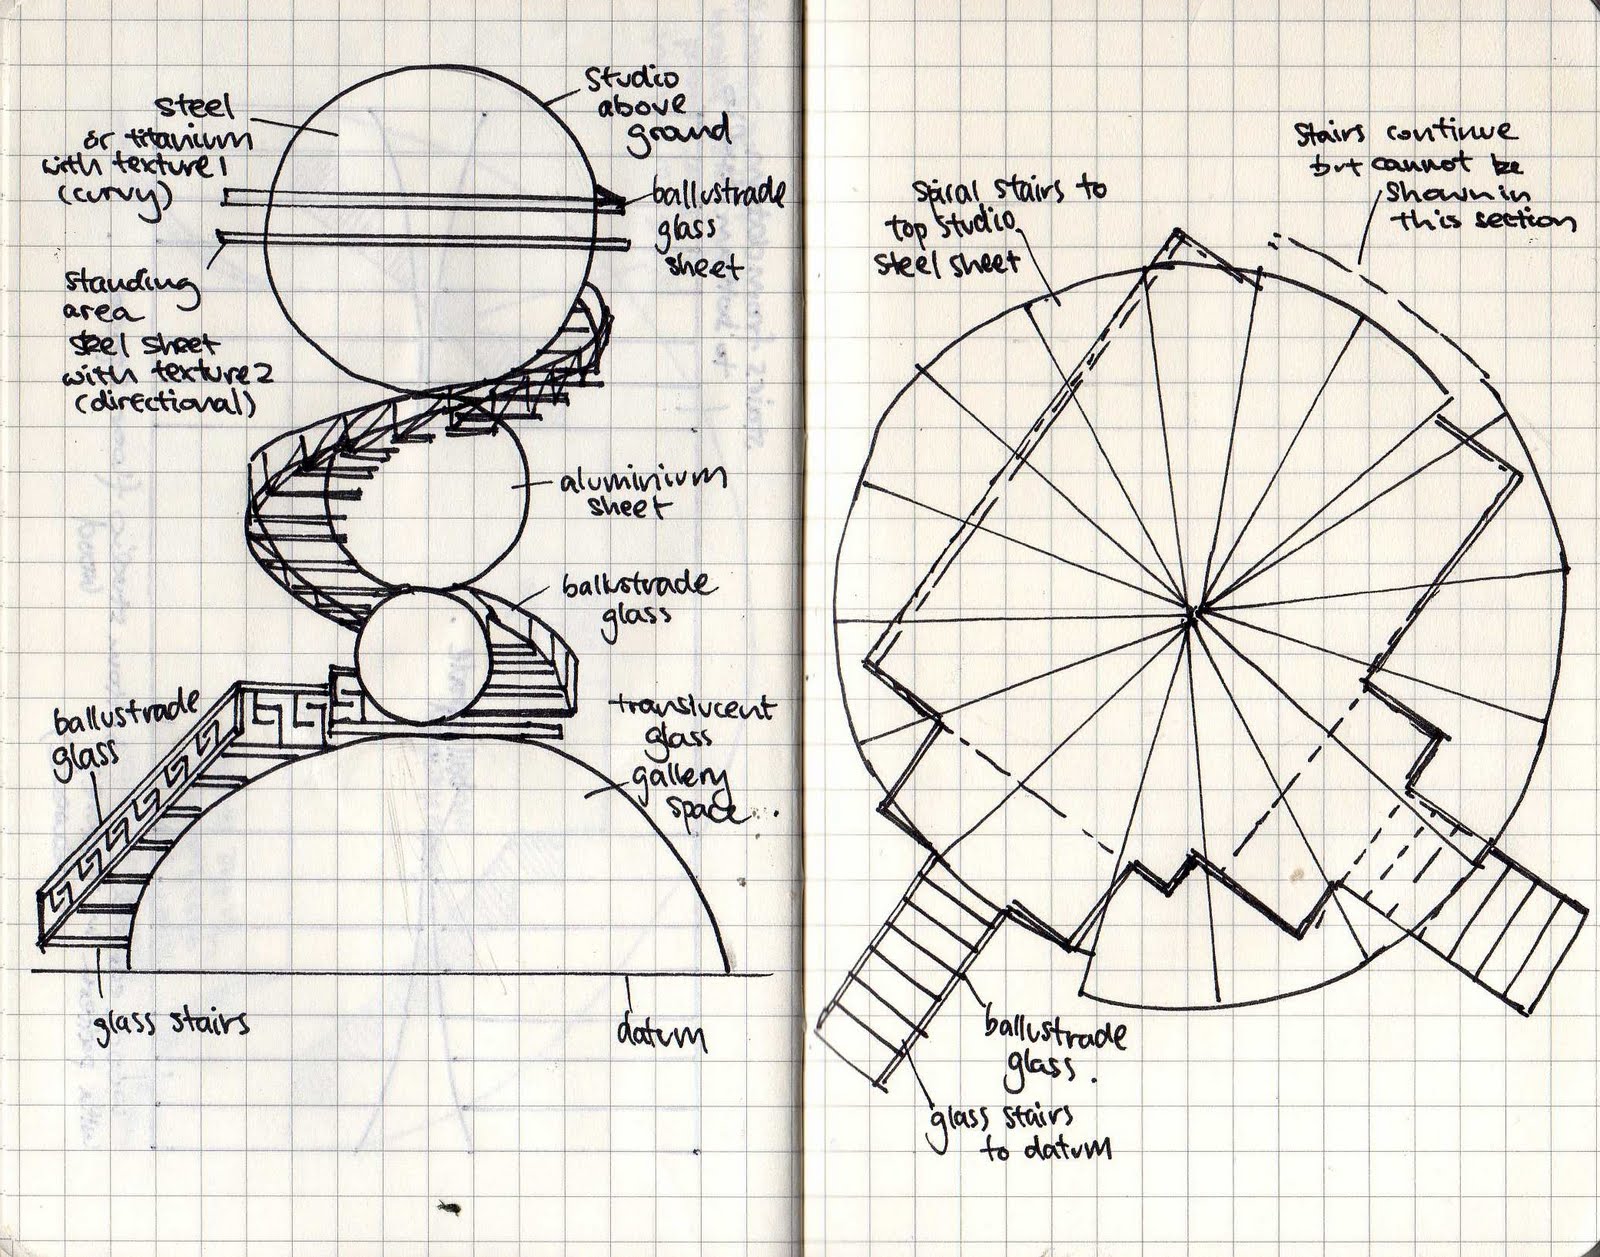 steel
or titanium
with texture 1
(curvy)
studio
above
ground
ballustrade
glass
sheet
standing
area
steel sheet
with texture 2
(directional)
aluminium
sheet
ballustrade
glass
ballustrade
glass
translucent
glass
gallery
space.
glass stairs
datum
spiral stairs to
top studio
steel sheet
stairs continue
but cannot be
shown in
this section
ballustrade
glass.
glass stairs
to datum